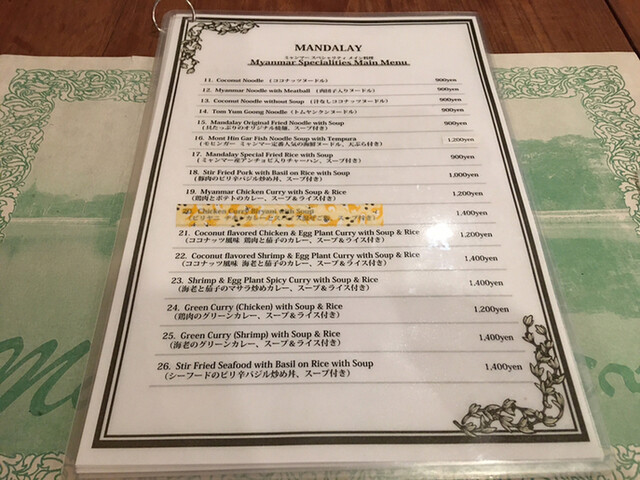 MANDALAY
ミャンマー スペシャリティ メイン料理
Myanmar Specialities Main Menu
11. Coconut Noodle (ココナッツヌードル) 900yen
12. Myanmar Noodle with Meatball (肉団子入りヌードル) 900yen
13. Coconut Noodle without Soup (汁なしココナッツヌードル) 900yen
14. Tom Yum Goong Noodle (トムヤンクンヌードル) 900yen
15. Mandalay Original Fried Noodle with Soup 900yen
(具たっぷりのオリジナル焼麺、スープ付き)
16. Mont Hin Gar Fish Noodle Soup with Tempura 1,200yen
(モヒンガー ミャンマー定番人気の海鮮ヌードル、天ぷら付き)
17. Mandalay Special Fried Rice with Soup 900yen
(ミャンマー産アンチョビ入りチャーハン、スープ付き)
18. Stir Fried Pork with Basil on Rice with Soup 1,000yen
(豚肉のピリ辛バジル炒め丼、スープ付き)
19. Myanmar Chicken Curry with Soup & Rice 1,200yen
(鶏肉とポテトのカレー、スープ&ライス付き)
20. Chicken Curry Biryani with Soup 1,400yen
21. Coconut flavored Chicken & Egg Plant Curry with Soup & Rice 1,200yen
(ココナッツ風味 鶏肉と茄子のカレー、スープ&ライス付き)
22. Coconut flavored Shrimp & Egg Plant Curry with Soup & Rice 1,400yen
(ココナッツ風味 海老と茄子のカレー、スープ&ライス付き)
23. Shrimp & Egg Plant Spicy Curry with Soup & Rice 1,400yen
(海老と茄子のマサラ炒めカレー、スープ&ライス付き)
24. Green Curry (Chicken) with Soup & Rice 1,200yen
(鶏肉のグリーンカレー、スープ&ライス付き)
25. Green Curry (Shrimp) with Soup & Rice 1,400yen
(海老のグリーンカレー、スープ&ライス付き)
26. Stir Fried Seafood with Basil on Rice with Soup 1,400yen
(シーフードのピリ辛バジル炒め丼、スープ付き)